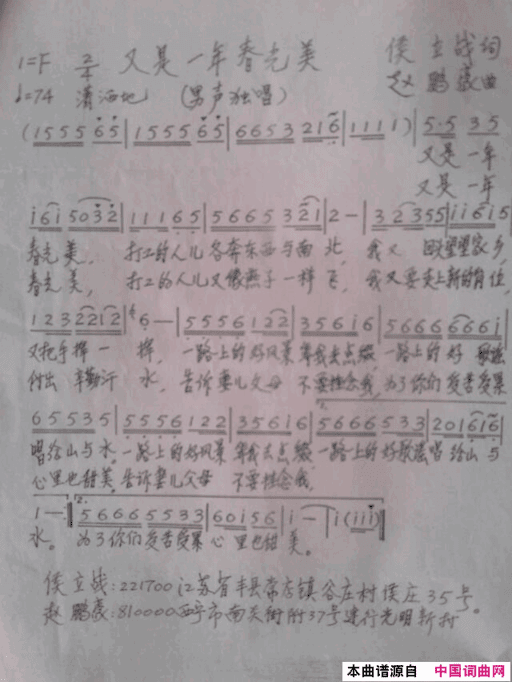 1=F 2/4 又是一年春光美 侯立战词
♩=74 潇洒地 (男声独唱) 赵鹏藏曲
(1555 65|1555 65|6653 216|111 1)|5·5 35
又是一年
又是一年
i6i 5032|111 65|5665 321|2-|323 55|iii6i5
春光美, 打工的人儿各奔东西与南北, 我又回望望家乡,
春光美, 打工的人儿又像燕子一样飞, 我又要走上新的岗位,
123 2212|6-|5556 122|356i6|5666 666i|
又把手挥一挥, 一路上的好风景等我去点缀, 一路上的好歌谣
付出辛勤汗水, 告诉妻儿父母不要挂念我, 为了你们受苦受累
65535|5556 122|356i6|5666 533|201 6i6|
唱给山与水。一路上的好风景等我去点缀, 一路上的好歌谣唱给山与
心里也甜美。告诉妻儿父母不要挂念我,
1-:|5666 5533|60i56|i-|i(iii)||
水。为了你们受苦受累心里也甜美。
侯立战:221700江苏省丰县常店镇谷庄村侯庄35号
赵鹏藏:810000西宁市南关街附37号建行光明新村。
本曲谱源自 中国词曲网